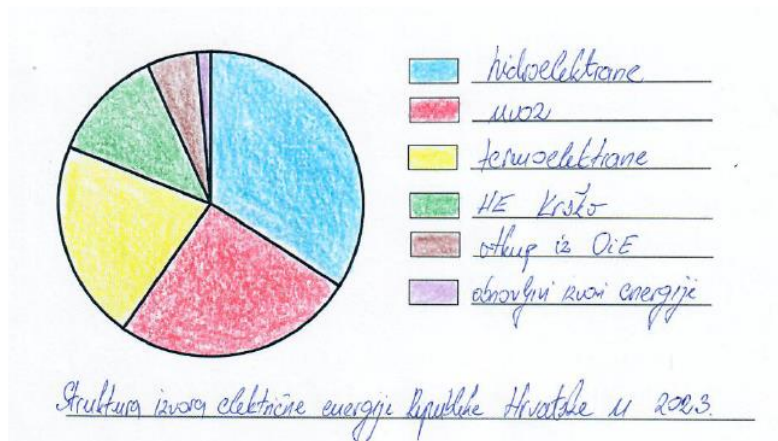 hidroelektrane
uvoz
termoelektrane
NE Krško
otkup iz OiE
obnovljivi izvori energije
Struktura izvora električne energije Republike Hrvatske u 2023.